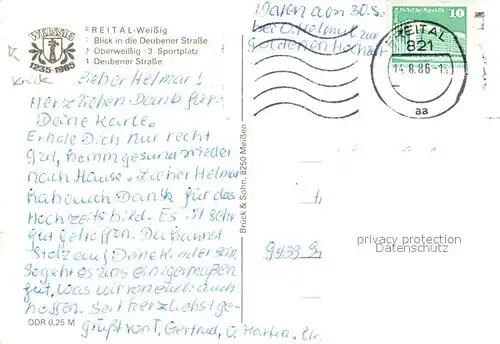 WEISSIG
1235-1985
FREITAL-Weißig
1 Blick in die Deubener Straße
2 Oberweißig · 3 Sportplatz
4 Deubener Straße
Waren am 30.
bei D. Helmut zur
goldenen Hochzeit
10
FREITAL
821
14.8.86-1
aa
Knick
Lieber Helmar!
Herzlichen Dank für
Deine Karte.
Erhole Dich nur recht
gut, komm gesund wieder
nach Hause. Lieber Helmar
hab auch Dank für das
Hochzeitsbild. Es ist sehr
gut getroffen. Du kannst
Stolz auf Deine Kinder sein
So geht es uns einigermaßen
gut, was wir von euch auch
hoffen. Seit herzlichst ge-
grüßt von T. Gertrud, O.
Brück & Sohn, 8250 Meißen
9933
privacy protection
Datenschutz
DDR 0,25 M